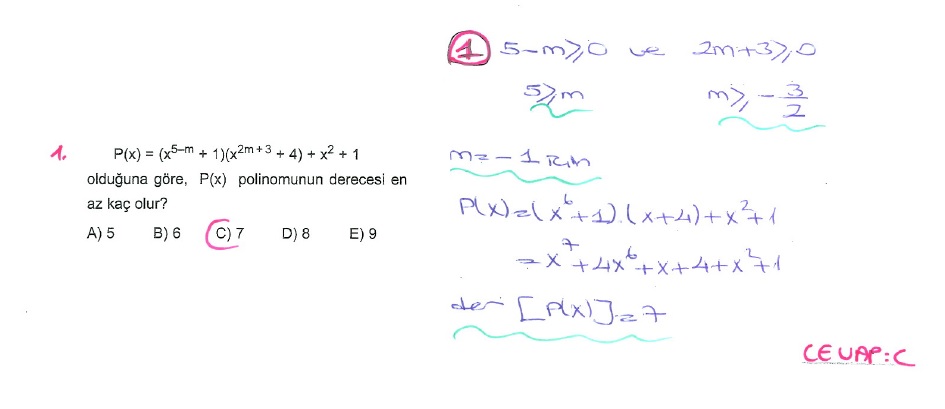 1. P(x) = (x^5–m + 1)(x^2m+3 + 4) + x^2 + 1
olduğuna göre, P(x) polinomunun derecesi en
az kaç olur?
A) 5 B) 6 C) 7 D) 8 E) 9
1 5-m≥0 ve 2m+3≥0
5≥m m≥-3/2
m=-1 için
P(x)=(x^6+1).(x+4)+x^2+1
=x^7+4x^6+x+4+x^2+1
der[P(x)]=7
CEVAP:C